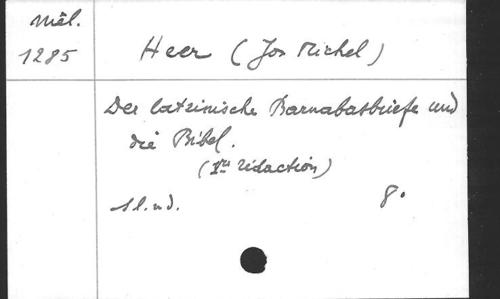 Mél.
1285
Heer (Jos Michel)
Der lateinische Barnabasbriefe und
die Bibel.
(1re rédaction)
s.l.n.d. 8°